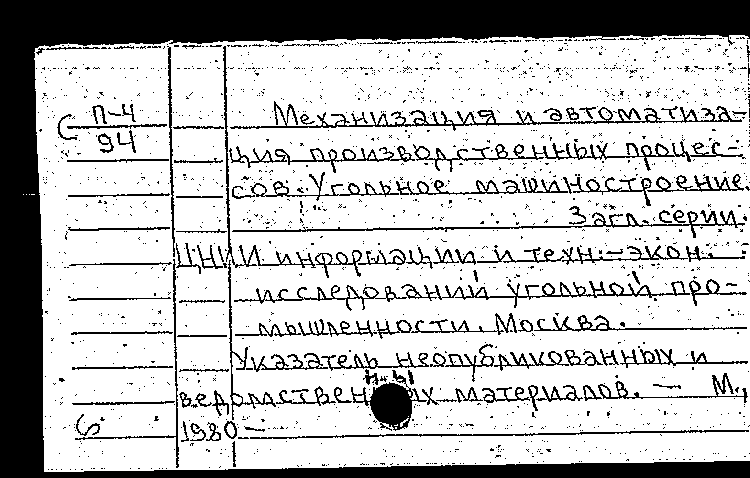 С П-4/94 Механизация и автоматиза-
ция производственных процес-
сов. Угольное машиностроение.
Загл. серии.
ЦНИИ информации и техн.-экон.
исследований угольной про-
мышленности. Москва.
Указатель неопубликованных и
н-ы
ведомственных материалов. — М.,
6 1980 —